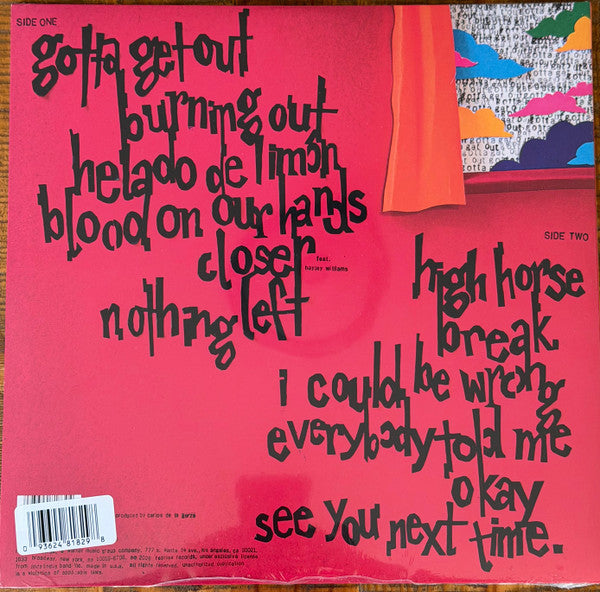 SIDE ONE
gotta get out
burning out
helado de limón
blood on our hands
closer
feat.
hayley williams
nothing left
SIDE TWO
high horse
break
i could be wrong
everybody told me
okay
see you next time.
produced by carlos de la garza
0 93624 81829 8
music group company, 777 s. santa fe ave., los angeles, ca 90021.
1633 broadway, new york, ny 10019-6708.
made in u.s.a. all rights reserved. unauthorized duplication
is a violation of applicable laws.